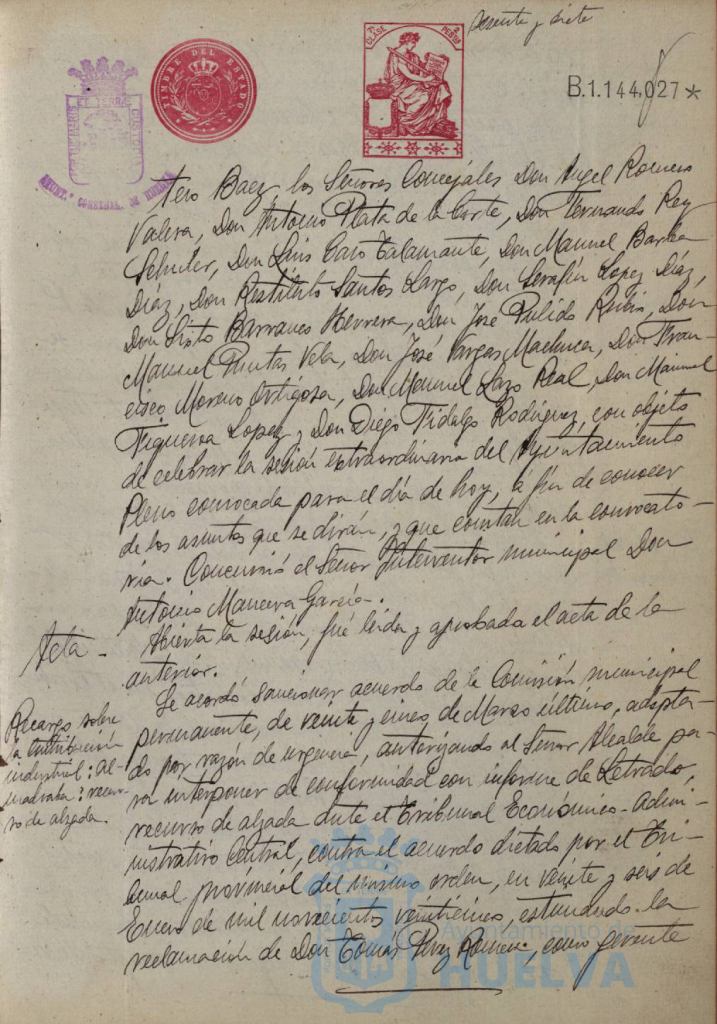 sesenta y siete
TIMBRE DEL ESTADO
7ª CLASE
PESETA
B.1.144,027*
AYUNT.º CONSTNAL. DE HUELVA
tero Baez, los Señores Concejales Don Angel Romero
Valera, Don Antonio Plata de la Corte, Don Fernando Rey
Don Luis Caro Talamante, Don Manuel Barba
Díaz, Don Restituto Santos Largo, Don Serafín Lopez Díaz,
Don Sixto Barranco Herrera, Don José Pulido Rubio, Don
Manuel Puntas Vela, Don José Vargas Machuca, Don Fran-
cisco Moreno Ortigosa, Don Manuel Lazo Real, Don Manuel
Figueroa Lopez y Don Diego Fidalgo Rodríguez, con objeto
de celebrar la sesión extraordinaria del Ayuntamiento
Pleno convocada para el día de hoy, á fin de conocer
de los asuntos que se dirán, y que constan en la convocato-
ria. Concurrió el Señor Interventor municipal Don
Antonio Manceva García.
Acta -
Abierta la sesión, fué leida y aprobada el acta de la
anterior.
Recargo sobre
la contribución
industrial: al-
madraba: recur-
so de alzada.
Se acordó sancionar acuerdo de la Comisión municipal
permanente, de veinte y cinco de Marzo último, adopta-
do por razón de urgencia, autorizando al Señor Alcalde pa-
ra interponer de conformidad con informe de Letrado,
recurso de alzada ante el Tribunal Económico-Admi-
nistrativo Central, contra el acuerdo dictado por el Tri-
bunal provincial del mismo orden, en veinte y seis de
Enero de mil novecientos veinticinco, estimando la
reclamación de Don Tomas Perez Romero, como gerente
Ayuntamiento de
HUELVA